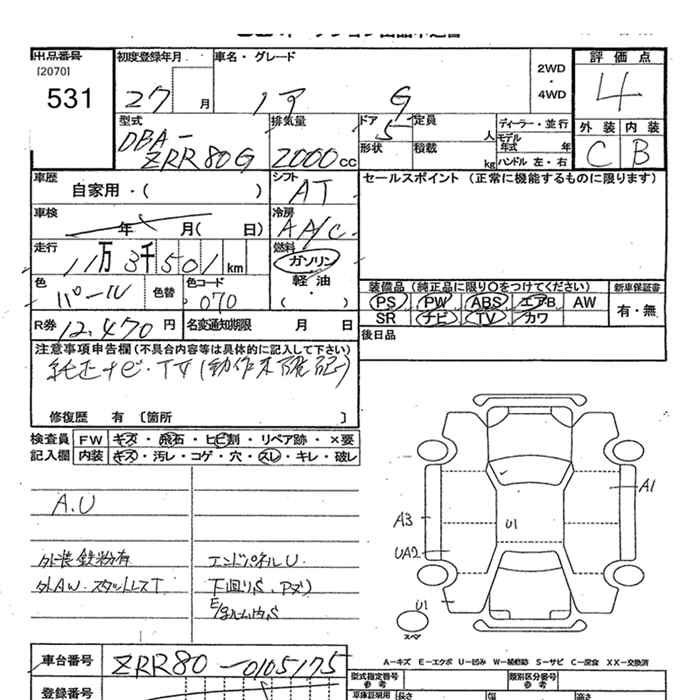 出品番号 初度登録年月 車名・グレード 2WD・4WD 評価点
[2070] 531 27 月 ノア G 4
型式 排気量 ドア 定員 ディーラー・並行 外装 内装
DBA-ZRR80G 2000cc 5 人 モデル年式 年 C B
形状 積載 kg ハンドル 左・右
車歴 シフト セールスポイント (正常に機能するものに限ります)
自家用・( ) AT
車検 冷房
年 月( 日) AA/C
走行 燃料
11万3千501km ガソリン
軽油
・( )
色 色替 色コード 装備品 (純正品に限り○をつけてください) 新車保証書
パール 070 PS PW ABS エアB AW 有・無
R券 12,470円 名変通知期限 月 日 SR ナビ TV カワ
後日品
注意事項申告欄(不具合内容等は具体的に記入して下さい)
純正ナビ・TV(動作未確認)
修復歴 有 [箇所 ]
検査員 FW キズ・飛石・ヒビ割・リペア跡・×要
記入欄 内装 キズ・汚レ・コゲ・穴・スレ・キレ・破レ
A.U
外装鉄粉有 エンドパネルU.
外AW・スタットレスT 下回りS.
A1
A3
U1
UA2
U1
スペ
A-キズ E-エクボ U-凹み W-補修跡 S-サビ C-腐食 XX-交換済
車台番号 ZRR80-0105175 型式指定番号 参考 類別区分番号 参考
登録番号 車庫証明用 長さ 幅 高さ